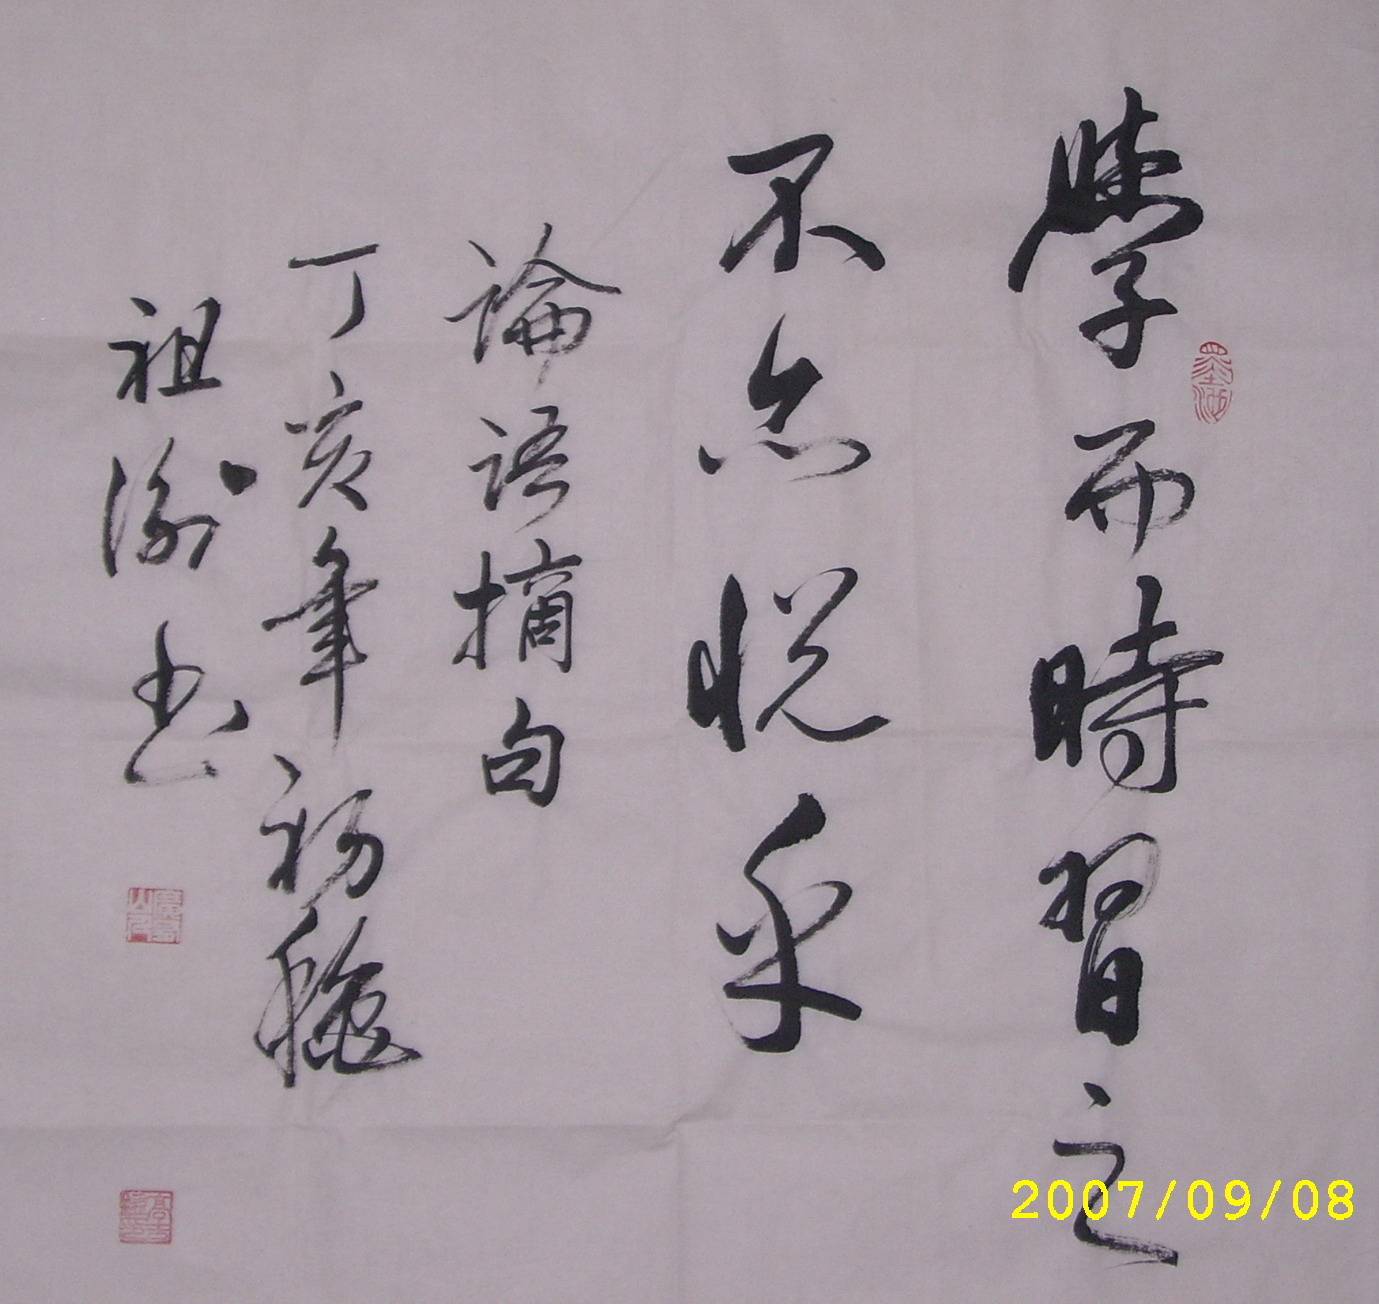 學而時習之
不亦悅乎
論語摘句
丁亥年初穐
祖衡书
墨海
2007/09/08